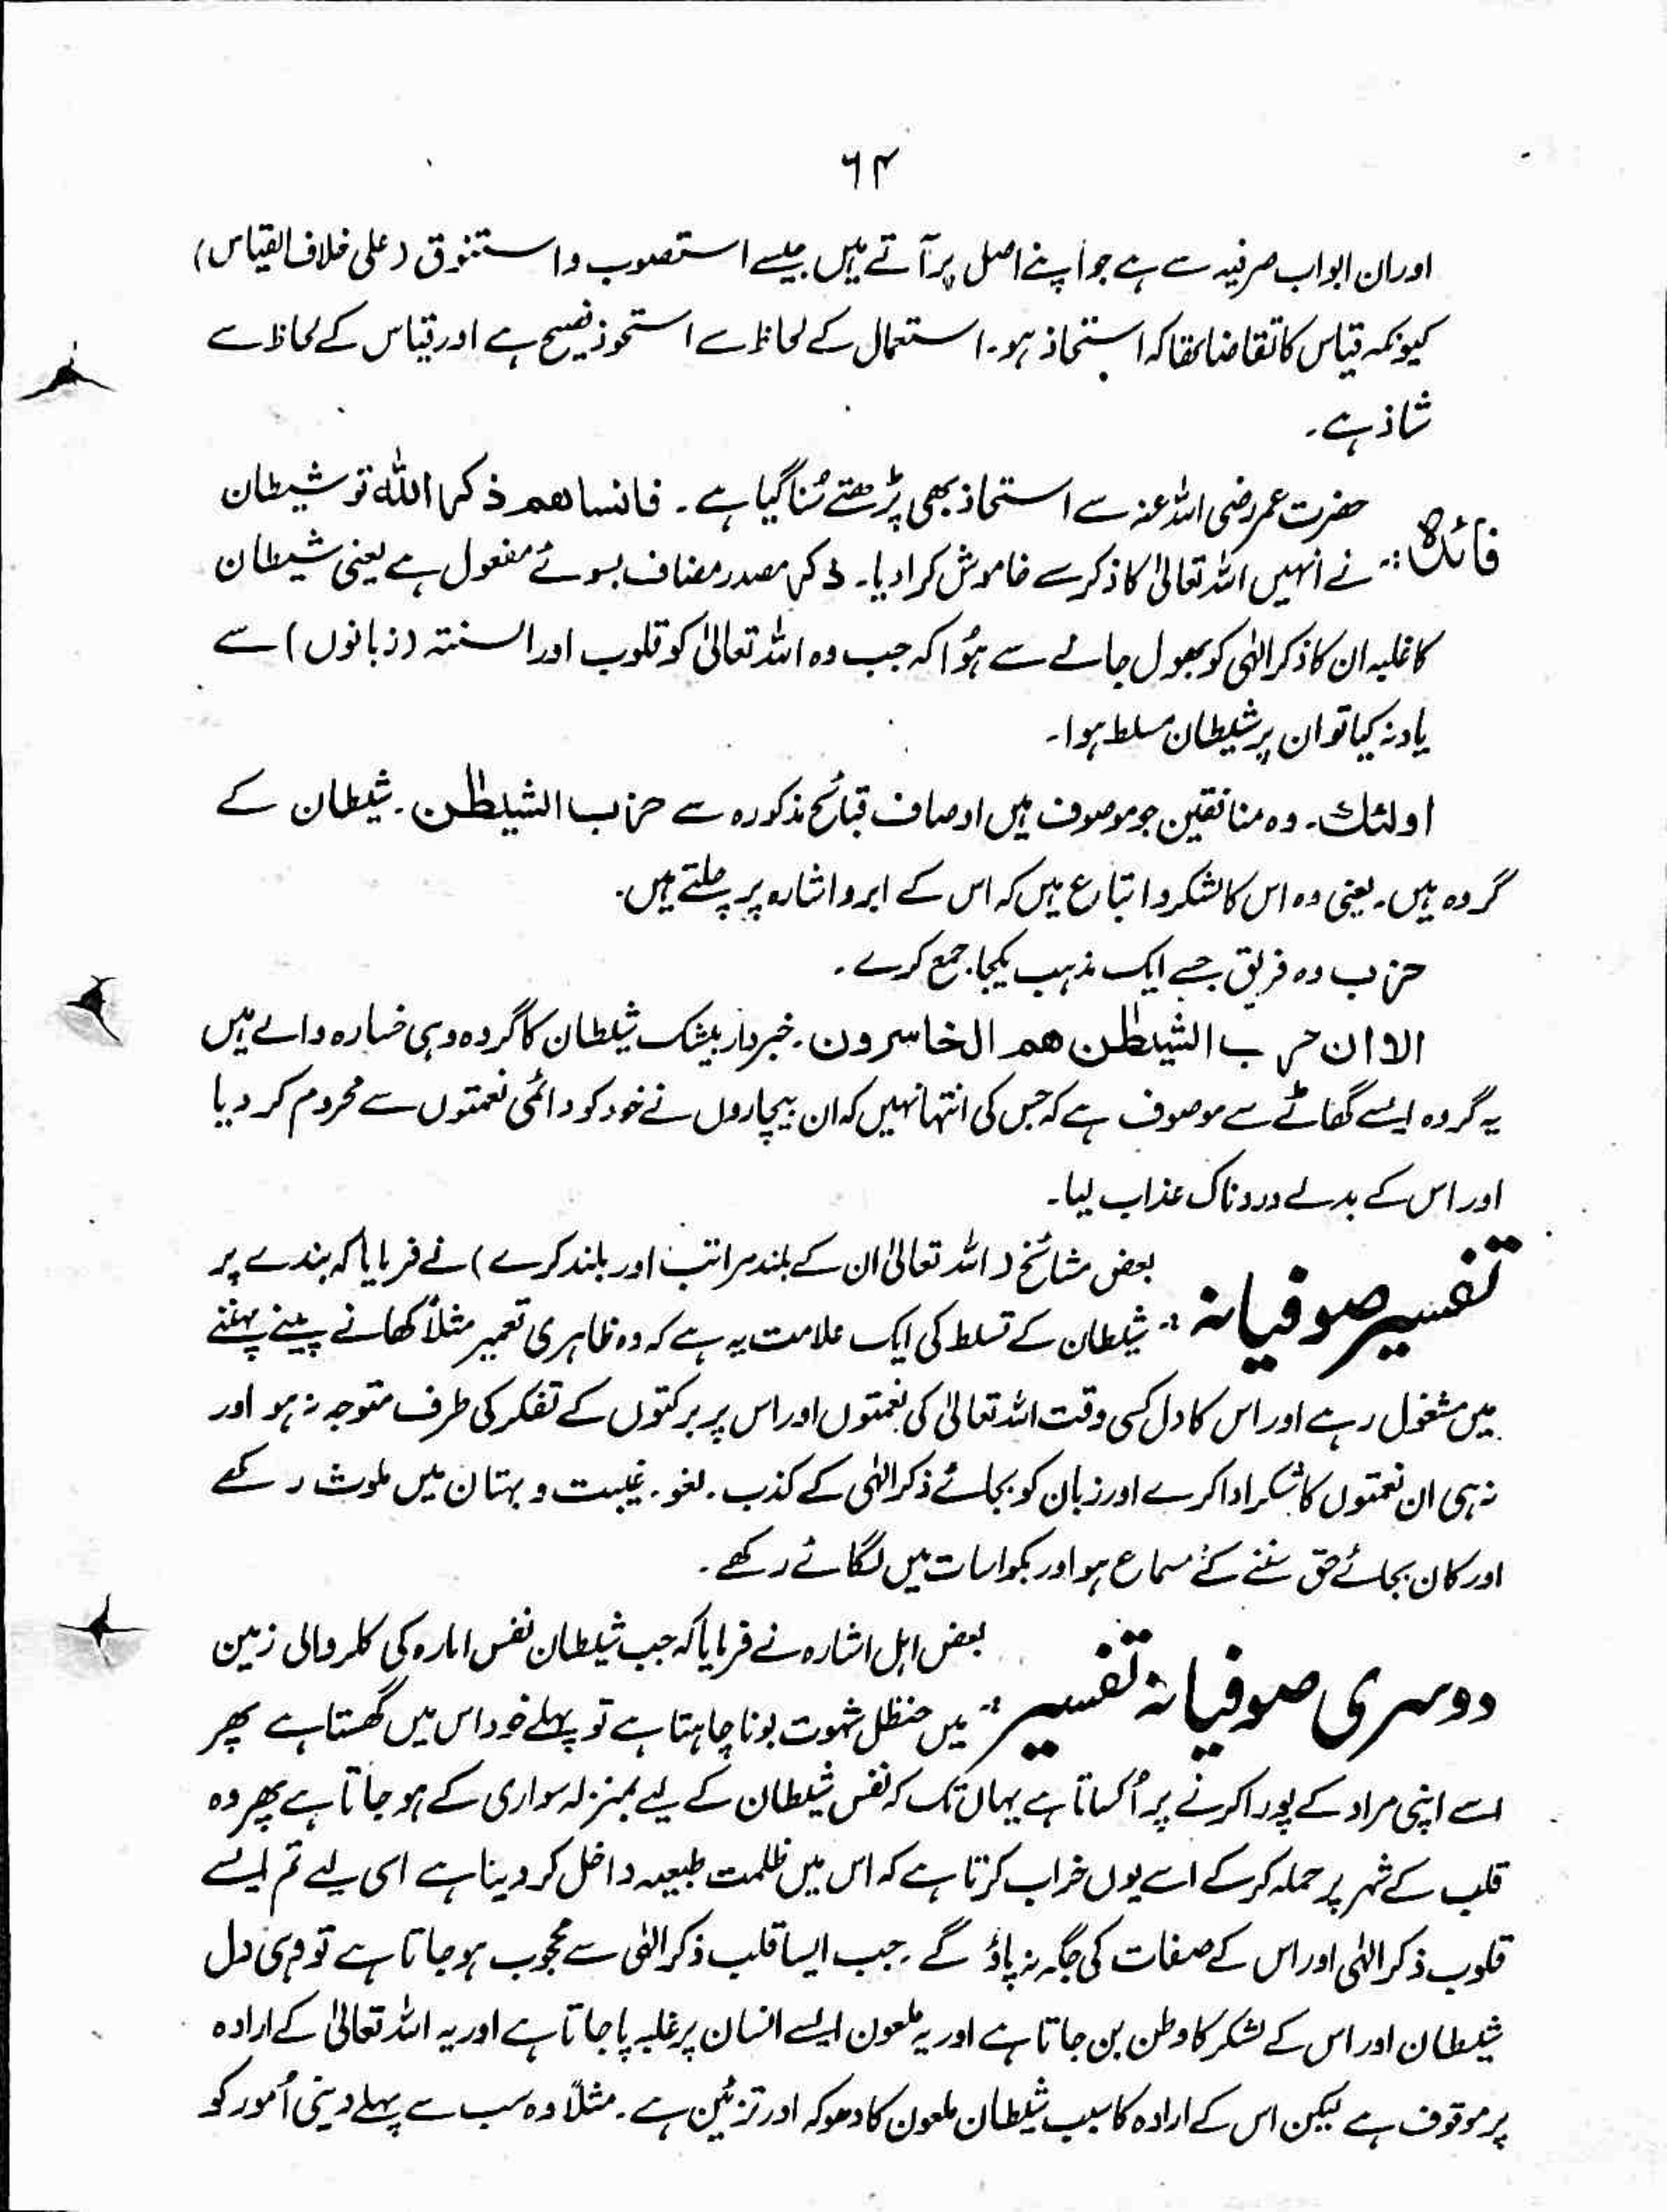 ۶۴
اور ان ابواب صرفیہ سے ہے جو اپنے اصل پر آتے ہیں جیسے استصوب و استنوق (علی خلاف القیاس)
کیونکہ قیاس کا تقاضا تھا کہ استحاذ ہو۔ استعمال کے لحاظ سے استحوذ فصیح ہے اور قیاس کے لحاظ سے
شاذ ہے۔
حضرت عمر رضی اللہ عنہ سے استحاذ بھی پڑھتے سُنا گیا ہے۔ فانساھم ذکر اللہ تو شیطان
فائدہ:۔ نے انہیں اللہ تعالیٰ کا ذکر سے خاموش کرا دیا۔ ذکر مصدر مضاف بسوئے مفعول ہے یعنی شیطان
کا غلبہ ان کا ذکر الٰہی کو بھول جانے سے ہُوا کہ جب وہ اللہ تعالیٰ کو قلوب اور السنتہ (زبانوں) سے
یاد نہ کیا تو ان پر شیطان مسلط ہوا۔
اولئک۔ وہ منافقین جو موصوف ہیں اوصاف قبائح مذکورہ سے حزب الشیطٰن۔ شیطان کے
گروہ ہیں۔ یعنی وہ اس کا لشکر و اتباع ہیں کہ اس کے ابرو اشارہ پر چلتے ہیں۔
حزب وہ فریق جسے ایک مذہب یکجا جمع کرے۔
الا ان حزب الشیطٰن ھم الخاسرون۔ خبردار بیشک شیطان کا گروہ وہی خسارہ والے ہیں
یہ گروہ ایسے گھاٹے سے موصوف ہے کہ جس کی انتہا نہیں کہ ان بیچاروں نے خود کو دائمی نعمتوں سے محروم کر دیا
اور اس کے بدلے دردناک عذاب لیا۔
بعض مشائخ (اللہ تعالیٰ ان کے بلند مراتب اور بلند کرے) نے فرمایا کہ بندے پر
تفسیر صوفیانہ:۔ شیطان کے تسلط کی ایک علامت یہ ہے کہ وہ ظاہری تعمیر مثلاً کھانے پینے پہننے
میں مشغول رہے اور اس کا دل کسی وقت اللہ تعالیٰ کی نعمتوں اور اس پر برکتوں کے تفکر کی طرف متوجہ نہ ہو اور
نہ ہی ان نعمتوں کا شکر ادا کرے اور زبان کو بجائے ذکر الٰہی کے کذب۔ لغو۔ غیبت و بہتان میں ملوث رکھے
اور کان بجائے حق سننے کے سماع ہو اور بکواسات میں لگائے رکھے۔
بعض اہل اشارہ نے فرمایا کہ جب شیطان نفس امارہ کی کلر والی زمین
دوسری صوفیانہ تفسیر:۔ میں حنظل شہوت بونا چاہتا ہے تو پہلے خود اس میں گھستا ہے پھر
اسے اپنی مراد کے پورا کرنے پر اُکساتا ہے یہاں تک کہ نفس شیطان کے لیے بمنزلہ سواری کے ہو جاتا ہے پھر وہ
قلب کے شہر پر حملہ کر کے اسے یوں خراب کرتا ہے کہ اس میں ظلمت طبیعہ داخل کر دیتا ہے اسی لیے تم ایسے
قلوب ذکر الٰہی اور اس کے صفات کی جگہ نہ پاؤ گے۔ جب ایسا قلب ذکر الٰہی سے محجوب ہو جاتا ہے تو وہی دل
شیطان اور اس کے لشکر کا وطن بن جاتا ہے اور یہ ملعون ایسے انسان پر غلبہ پا جاتا ہے اور یہ اللہ تعالیٰ کے ارادہ
پر موقوف ہے لیکن اس کے ارادہ کا سبب شیطان ملعون کا دھوکہ اور تزئین ہے۔ مثلاً وہ سب سے پہلے دینی اُمور کو